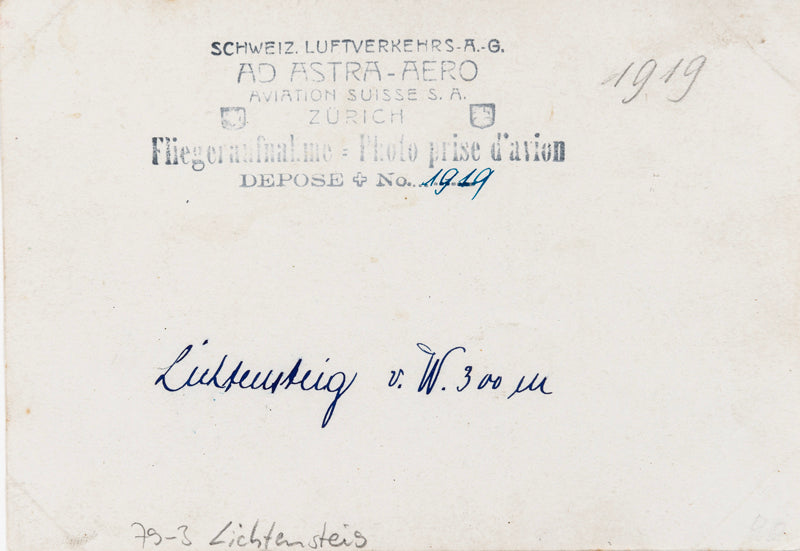 SCHWEIZ. LUFTVERKEHRS-A.-G.
AD ASTRA-AERO
AVIATION SUISSE S. A.
ZÜRICH
Fliegeraufnahme = Photo prise d'avion
DEPOSE + No. 1919
1919
Lichtensteig v. W. 300 m
79-3 Lichtensteig